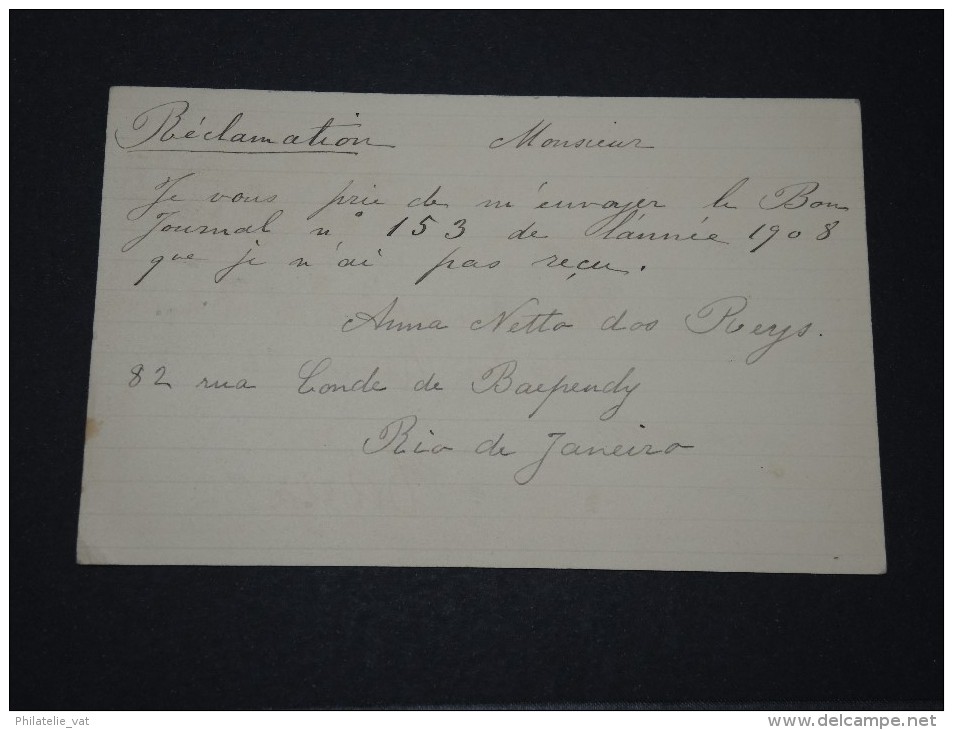 Réclamation Monsieur
Je vous prie de m'envoyer le Bon
Journal n° 153 de l'année 1908
que je n'ai pas reçu.
Anna Netto dos Reys.
82 rua Conde de Baependy
Rio de Janeiro
Philatelie_vat
www.delcampe.net